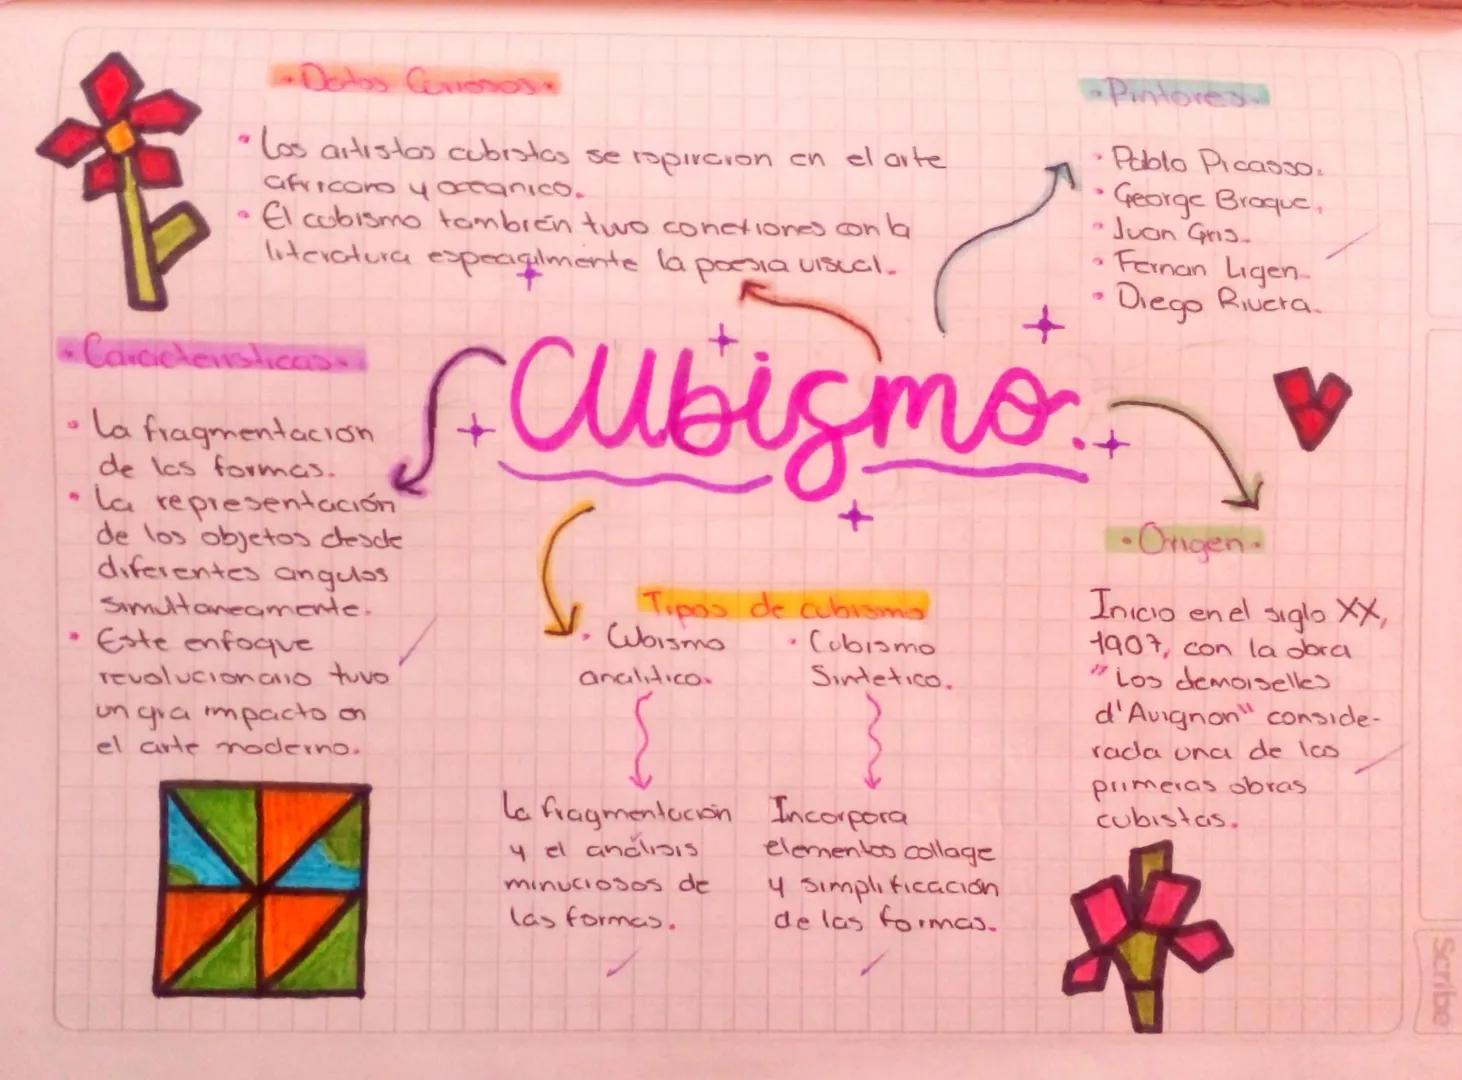 • Datos Curiosos •
• Los artistas cubistas se ispiraron en el arte
africano y oceanico.
• El cubismo también tuvo conexiones con la
literatura especialmente la poesia visual.
• Pintores •
• Pablo Picasso.
• George Braque.
• Juan Gris.
• Fernan Ligen.
• Diego Rivera.
Cubismo.
• Caracteristicas •
• La fragmentación
de las formas.
• La representación
de los objetos desde
diferentes angulos
simultaneamente.
• Este enfoque
revolucionario tuvo
un gra impacto en
el arte moderno.
Tipos de cubismo
• Cubismo
analitico.
• Cubismo
Sintetico.
La fragmentación
y el análisis
minuciosos de
las formas.
Incorpora
elementos collage
y simplificación
de las formas.
• Origen •
Inicio en el siglo XX,
1907, con la obra
"Los demoiselles
d'Avignon" conside-
rada una de las
primeras obras
cubistas.
Scribe